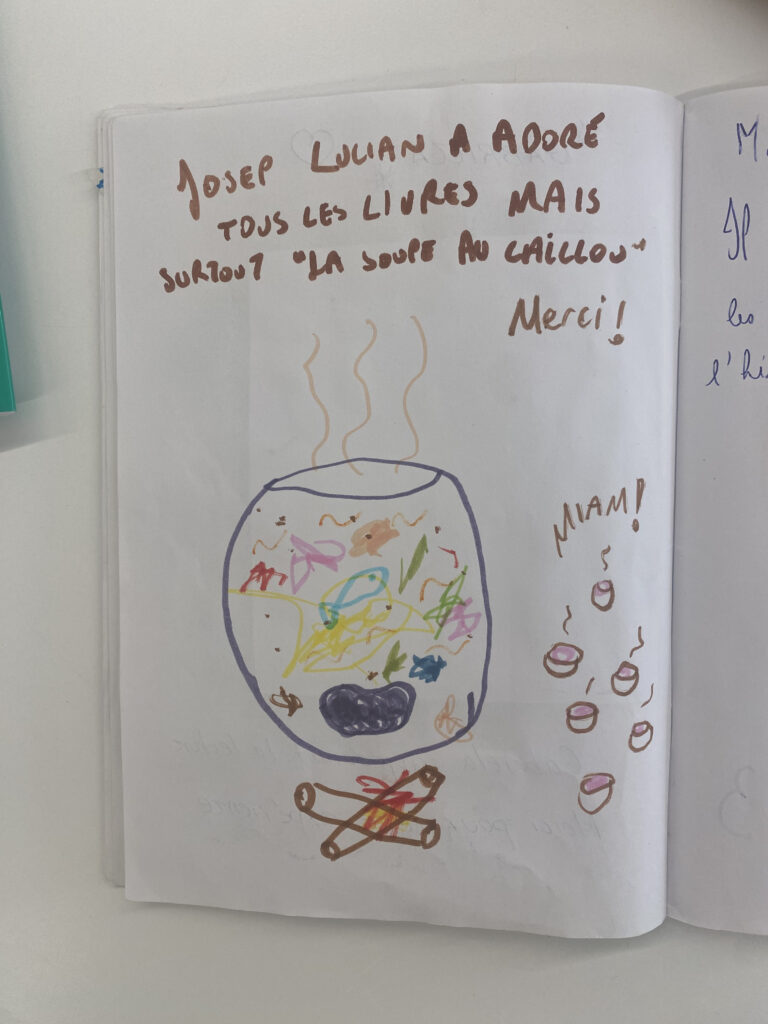 JOSEP LULIAN A ADORÉ
TOUS LES LIVRES MAIS
SURTOUT "LA SOUPE AU CAILLOU"
Merci!
MIAM!
M.
Il
les
l'his